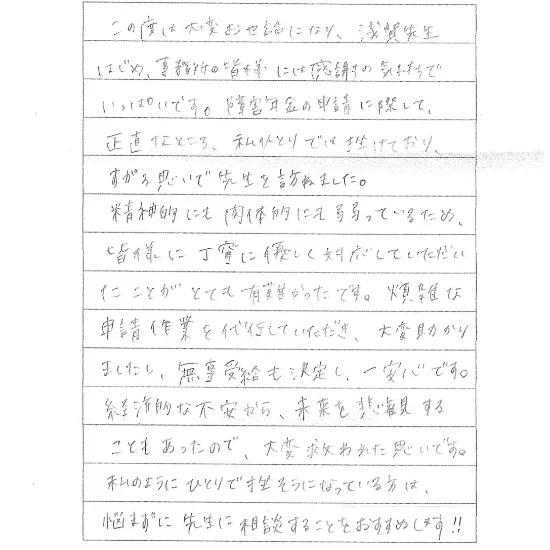 この度は大変お世話になり、浅賀先生
はじめ、事務所の皆様には感謝の気持ちで
いっぱいです。障害年金の申請に際して、
正直なところ、私ひとりでは挫けており、
すがる思いで先生を訪ねました。
精神的にも肉体的にも弱っているため、
皆様に丁寧に優しく対応していただい
たことがとても有難かったです。煩雑な
申請作業を代行していただき、大変助かり
ましたし、無事受給も決定し、一安心です。
経済的な不安から、未来を悲観する
こともあったので、大変救われた思いです。
私のようにひとりで挫そうになっている方は、
悩まずに先生に相談することをおすすめします!!